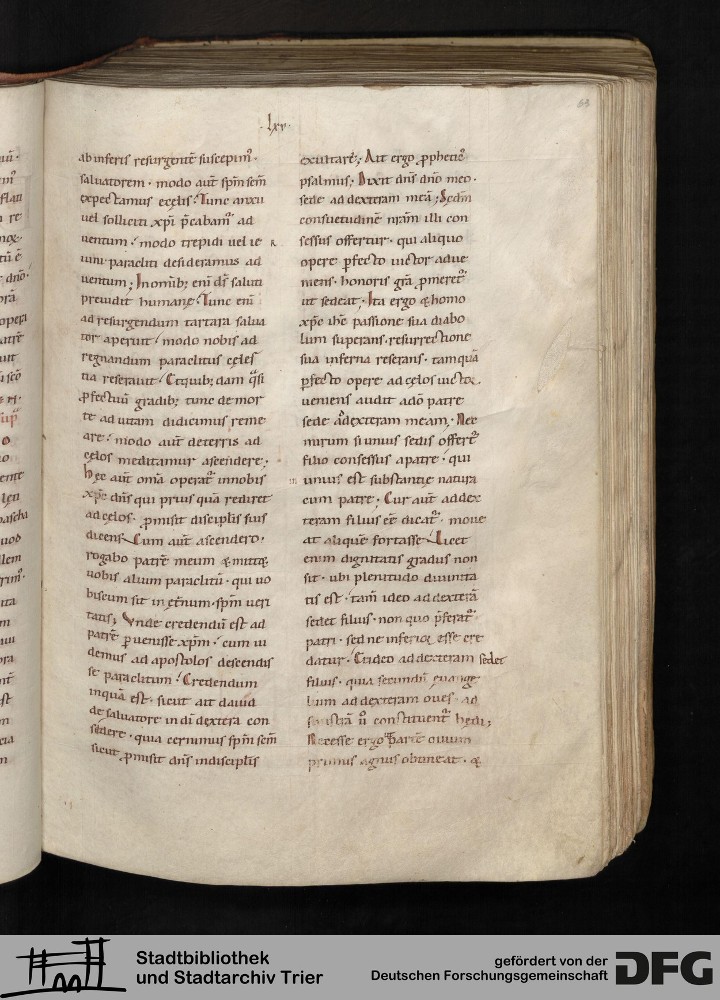 · lxv ·
63
ab inferis resurgentē suscepim᷒ ·
saluatorem · modo aut̄ sp̄m sc̄m
expectamus ę celis · Tunc anxii
uel solliciti xp̄i p̄cabam᷒ ad
uentum · modo trepidi uel ie
iuni paracliti desideramus ad
uentum ; In omīb; eni ds̄ saluti
preuidit humanę · Tunc eni
ad resurgendum tartara salua
tor aperuit · modo nobis ad
regnandum paraclitus cęles
tia reserauit · Et quib; dam q̄si
ꝓfectuū gradib; tunc de mor
te ad uitam didicimus reme
are · modo aut̄ de terris ad
cęlos meditamur ascendere ·
Hęc aut̄ omīa operat᷒ in nobis
xp̄c dn̄s qui prius quā rediret
ad cęlos · ꝓmisit discipl̄is suis
dicens · Cum aut̄ ascendero ·
rogabo patrē meum & mittet
uobis alium paraclitū · qui uo
biscum sit in ęt̄num · sp̄m ueri
tatis ; Vnde credendū est ad
patrē peruenisse xp̄m · cum ui
demus ad apostolos descendis
se paraclitum · Credendum
inquā est · sicut ait dauid
de saluatore in dī dextera con
sedere · quia cernimus sp̄m sc̄m
sicut ꝓmisit dn̄s in discipl̄is
exultare ; Ait ergo ꝓpheticᵒ
psalmus ; Dixit dn̄s dn̄o meo ·
sede ad dexteram meā ; Scd̄m
consuetudinē nr̄am illi con
sessus offertur · qui aliquo
opere ꝑfecto uictor adue
niens · honoris gr̄a ꝓmeret᷒
ut sedeat · Ita ergo & homo
xp̄c ih̄c passione sua diabo
lum superans · resurrectione
sua inferna reserans · tamquā
ꝑfecto opere ad cęlos uictor
ueniens audit a dō patre
sede ad dexteram meam · Nec
mirum si unius sedis offert᷒
filio consessus a patre · qui
unius est substantię natura
cum patre · Cur aut̄ ad dex
teram filius eē dicat᷒ · moue
at aliquē fortasse · Licet
enim dignitatis gradus non
sit · ubi plenitudo diuinita
tis est · tam̄ ideo ad dexterā
sedet filius · non quo p̄ferat᷒
patri · sed ne inferior esse cre
datur · Et ideo ad dexteram sedet
filius · quia secundū euange
lium ad dexteram oues · ad
sinistrā ū constituent᷒ hędi ;
Necesse ergo partē ouium
primus agnus obtineat · &
Stadtbibliothek
und Stadtarchiv Trier
gefördert von der
Deutschen Forschungsgemeinschaft
DFG